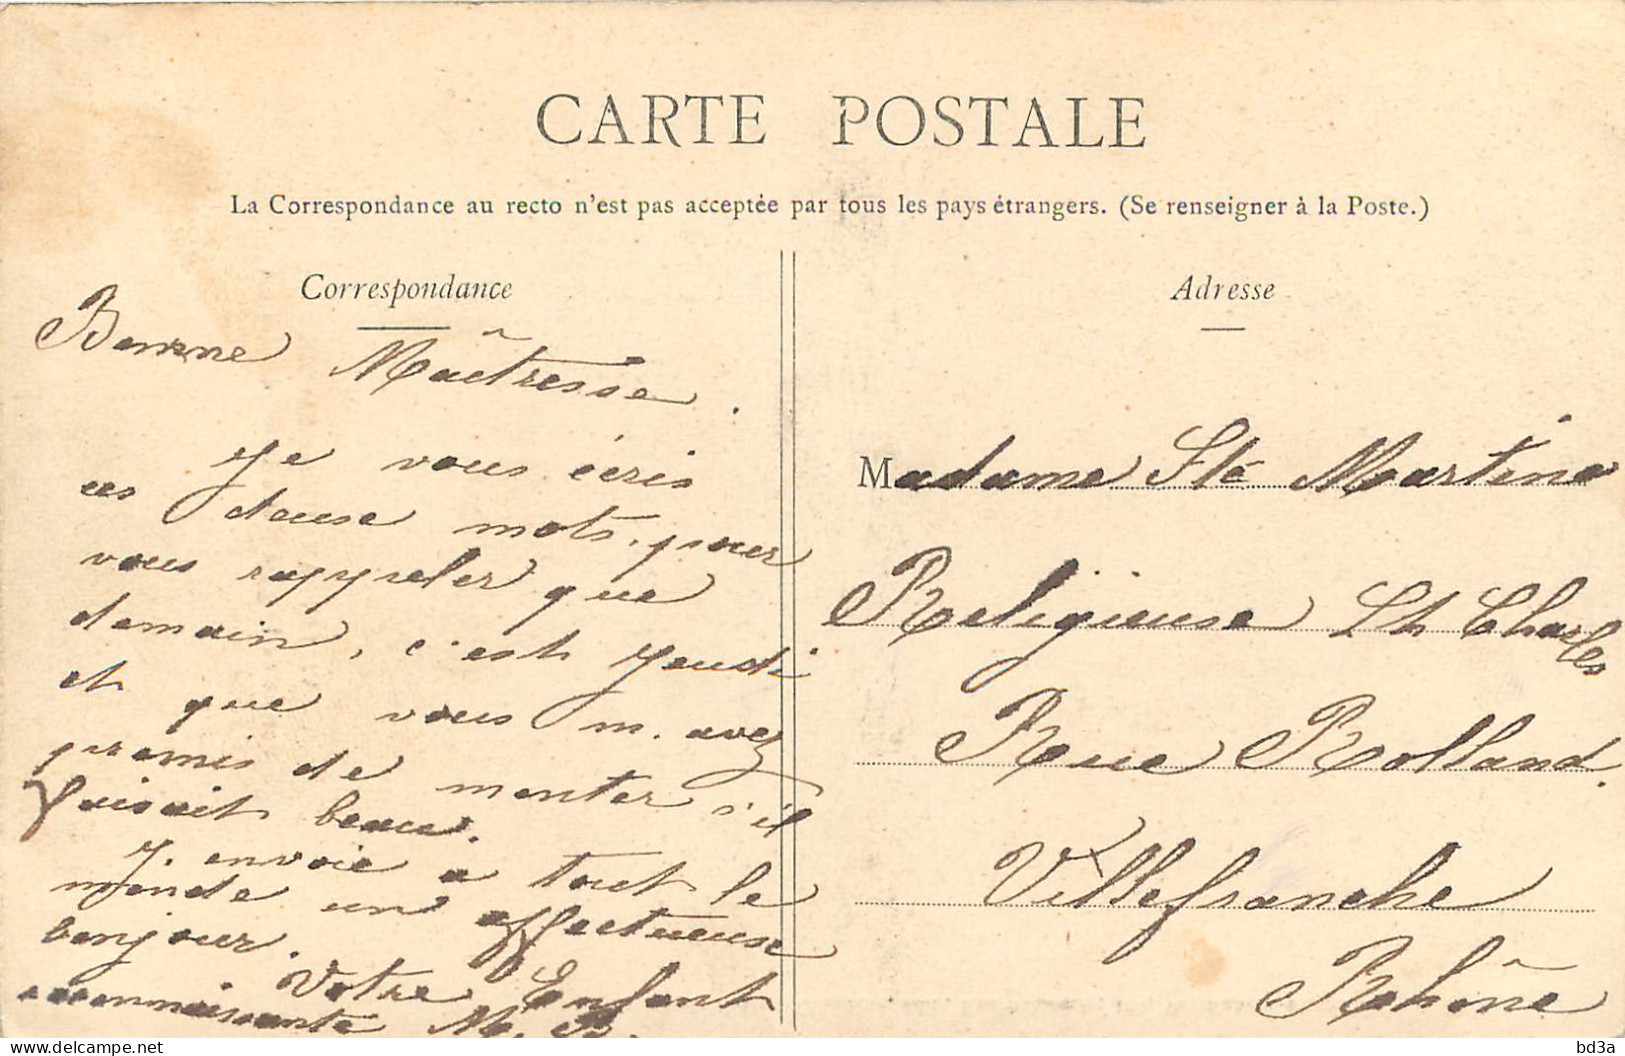 CARTE POSTALE
La Correspondance au recto n'est pas acceptée par tous les pays étrangers. (Se renseigner à la Poste.)
Correspondance
Bonne Maîtresse.
Je vous écris
ces deuxe mots, pour
vous rappeler que
demain, c'est Jeudi
et que vous m'avez
promis de monter s'il
faisait beau.
J'envoie a tout le
monde un affectueuse
bonjour.
Votre Enfant
reconnaissante M. B.
Adresse
Madame Ste Martine
Religieuse St Charles
Rue Rolland.
Villefranche
Rhône
bd3a